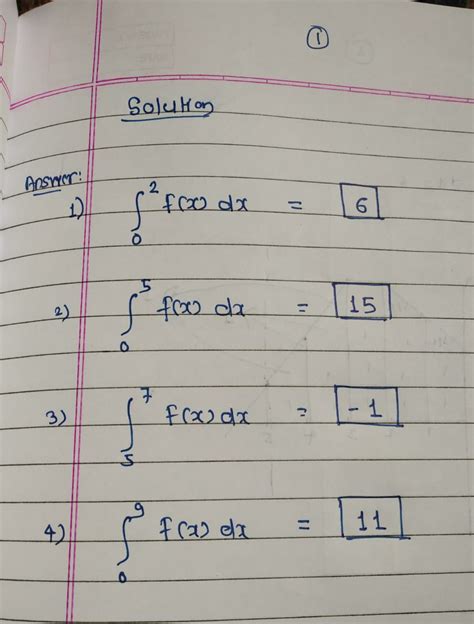 1
Solution
Answer:
1) ∫₀² f(x) dx = 6
2) ∫₀⁵ f(x) dx = 15
3) ∫₅⁷ f(x) dx = -1
4) ∫₀⁹ f(x) dx = 11